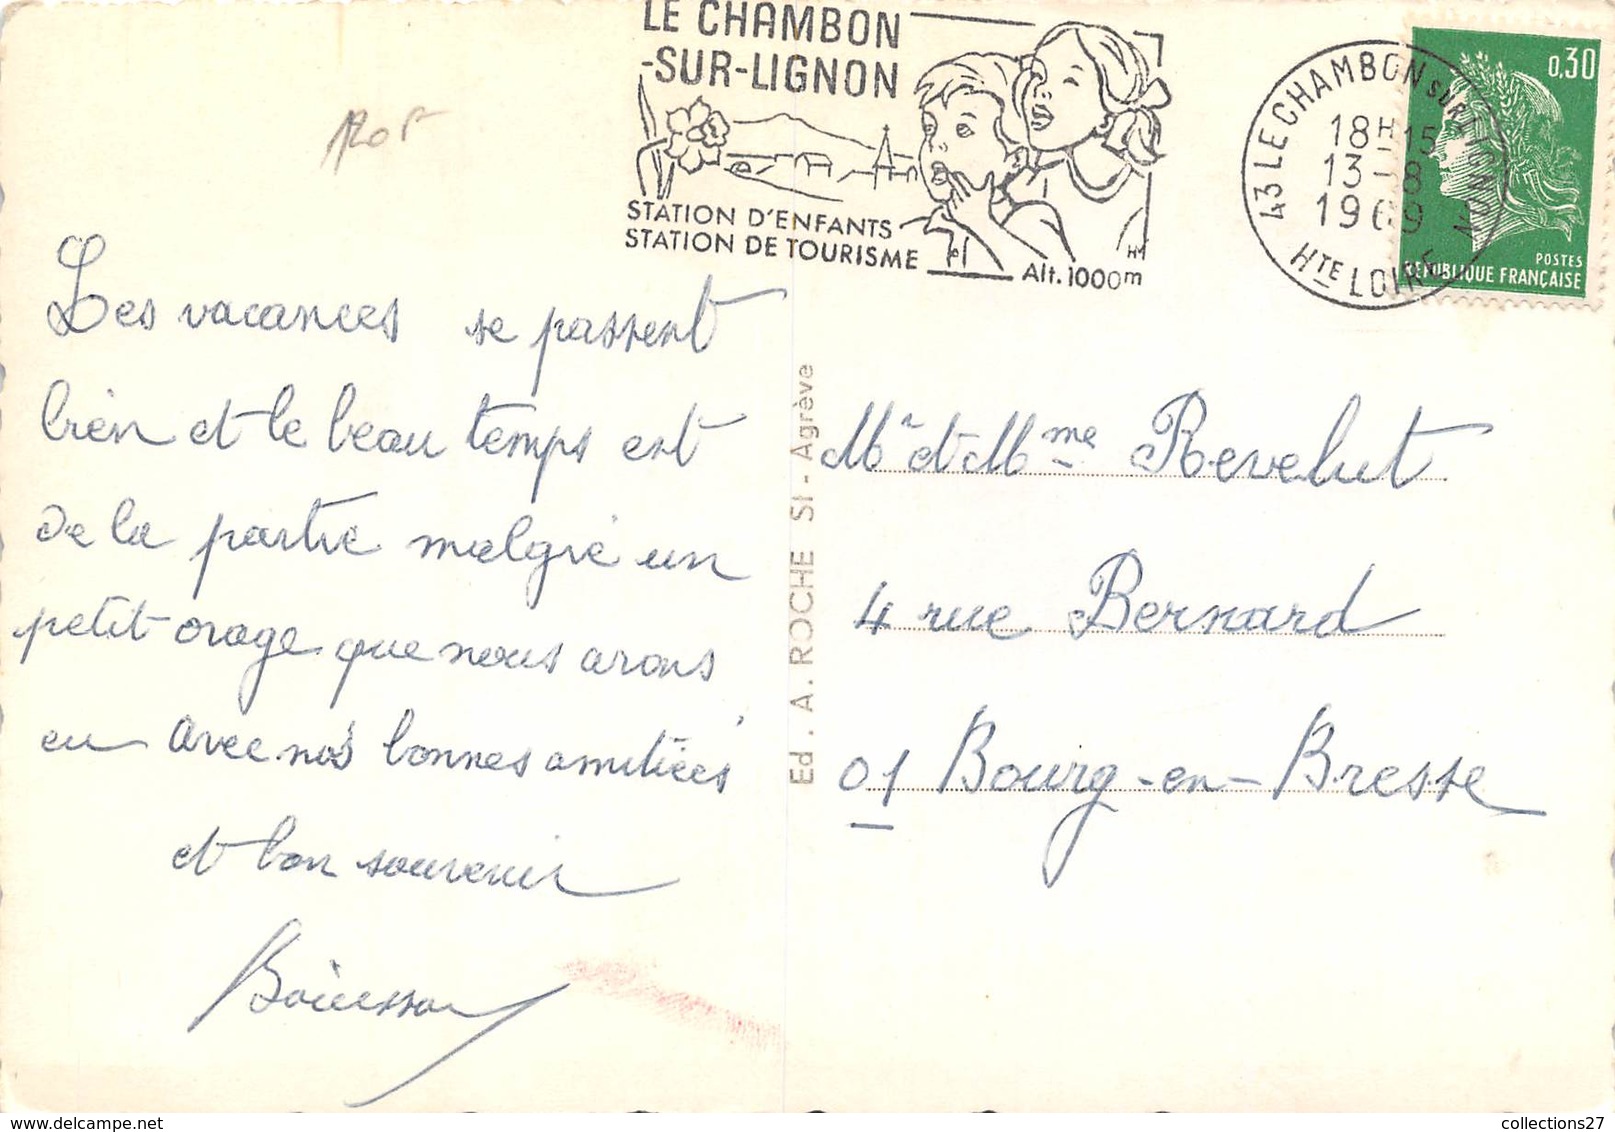 LE CHAMBON
-SUR-LIGNON
STATION D'ENFANTS
STATION DE TOURISME
Alt. 1000m
43 LE CHAMBON SUR LIGNON
18H15
13-8
1969
HTE LOIRE
0,30
POSTES
REPUBLIQUE FRANÇAISE
Les vacances se passent
bien et le beau temps est
de la partie malgré un
petit orage que nous avons
eu avec nos bonnes amitiées
et bon souvenir
Ed. A. ROCHE St-Agrève
Mr et Mme Revelut
4 rue Bernard
01 Bourg-en-Bresse
collections27